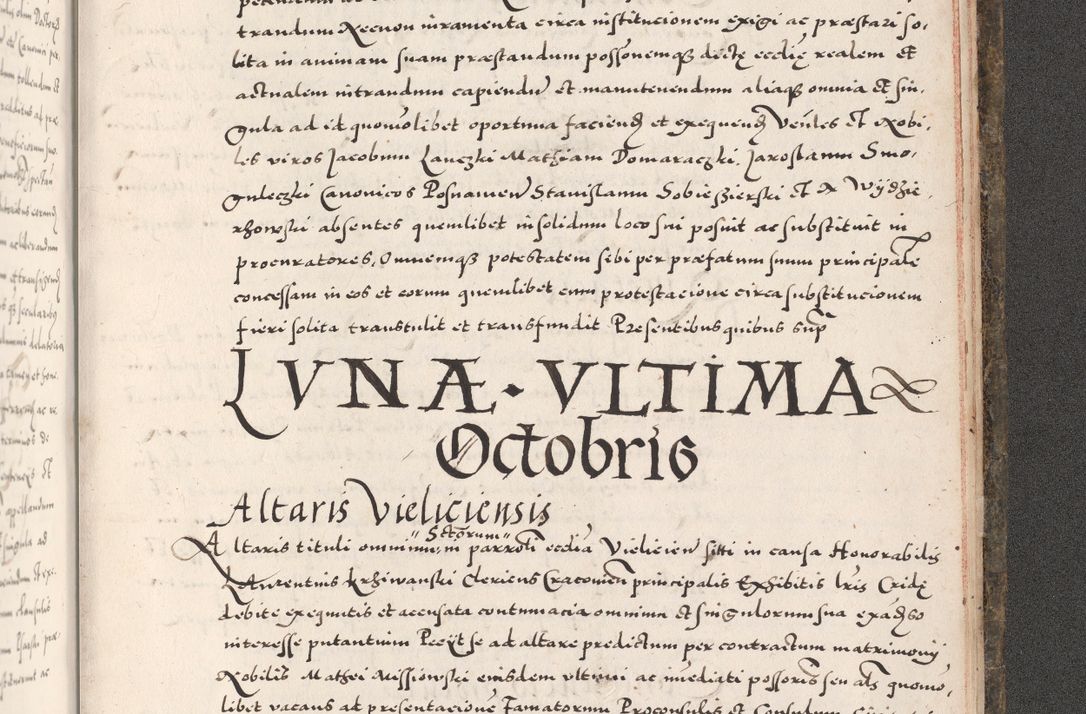 trandum Necnon iuramenta circa institucionem exigi ac præstari so,
lita in animam suam præstandum possonemq3 dictę ecclię realem et
actualem intrandum capiendū et manutenendum aliaq3 omnia et sin,
gula ad id quouolibet oportuna faciend et exequend Venles et Nobi,
les viros Jacobum Lanczki Mathiam Domaraczki, Jaroslaum Smo,
guleczki Canonicos Posnanien Stanislaum Sobieszierski et N Wÿdzie,
rzhowski absentes quemlibet insolidum loco sui posuit ac substituit in
procuratores, Omnemq3 potestatem sibi per præfatum suum principale
concessam in eos et eorum quemlibet cum protestacione circa substitucionem
fieri solita transtulit et transfundit Præsentibus quibus sup
LVNÆ · VLTIMA
Octobris
Altaris Vieliciensis
Altaris tituli omnium "Sctorum" in parroti ecclia Vielicien siti in causa Honorabilis
Laurentius Krzhiwanski Clericus Cracouien principalis Exhibitis lris Cridę
debite exequutis et accusata contumacia omnium et singulorum sua exadso
interesse putantium Peeÿt se ad altare predictum per contractum matrimonÿ
Nobilis Mathei Missiowski eiusdem vltimi ac imediati possoris seu als quomo,
libet vacans ad presentacione Famatorum Proconsulis et Consulum